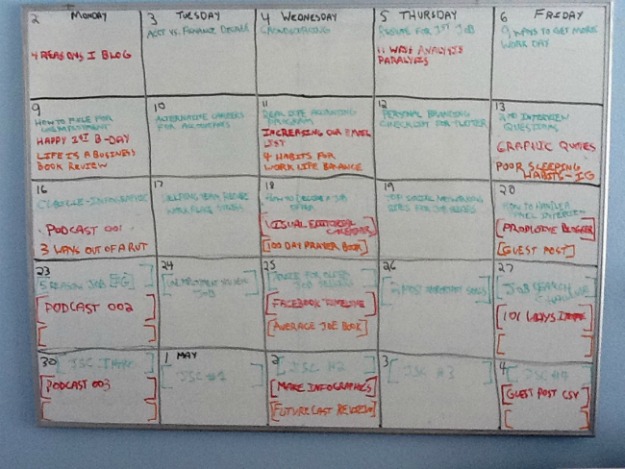 2 MONDAY
3 TUESDAY
4 WEDNESDAY
5 THURSDAY
6 FRIDAY
4 REASONS I BLOG
ACCT VS. FINANCE
CROWDSOURCING
RESUME FOR 1ST JOB
11 WAYS ANALYSIS
PARALYZES
9 WAYS TO GET MORE
WORK DAY
9
HOW TO FILE FOR
UNEMPLOYMENT
HAPPY 1ST B-DAY
LIFE IS A BUSINESS
BOOK REVIEW
10
ALTERNATIVE CAREERS
FOR
11
REAL LIFE ACCOUNTING
PROGRAM
INCREASING OUR EMAIL
LIST
4 HABITS FOR
WORK LIFE BALANCE
12
PERSONAL BRANDING
CHECKLIST FOR TWITTER
13
2ND INTERVIEW
QUESTIONS
GRAPHIC QUOTES
POOR SLEEPING
HABITS-IG
16
PODCAST 001
3 WAYS OUT OF A RUT
17
18
HOW TO DECLINE A JOB
OFFER
[VISUAL EDITORIAL
CALENDARS]
[100 DAY PRAYER BOOK]
19
TOP SOCIAL NETWORKING
SITES FOR JOB SEEKERS
20
HOW TO HANDLE A
PANEL INTERVIEW
[PROPLOGIVE BLOGGER]
[GUEST POST]
23
5 REASON JOB [IG]
[PODCAST 002]
[ ]
24
JOB
25
[FACEBOOK TIMELINE]
[AVERAGE JOE BOOK]
26
27
[JOB SEARCH
CHALLENGE]
[101 WAYS]
[ ]
30
[JSC]
[PODCAST 003]
[ ]
1 MAY
[JSC #1]
2
[JSC #2]
[MAKE INFOGRAPHICS]
[FUTURECAST REVIEW]
3
[JSC #3]
4
[JSC #4]
[GUEST POST CSV]
[ ]